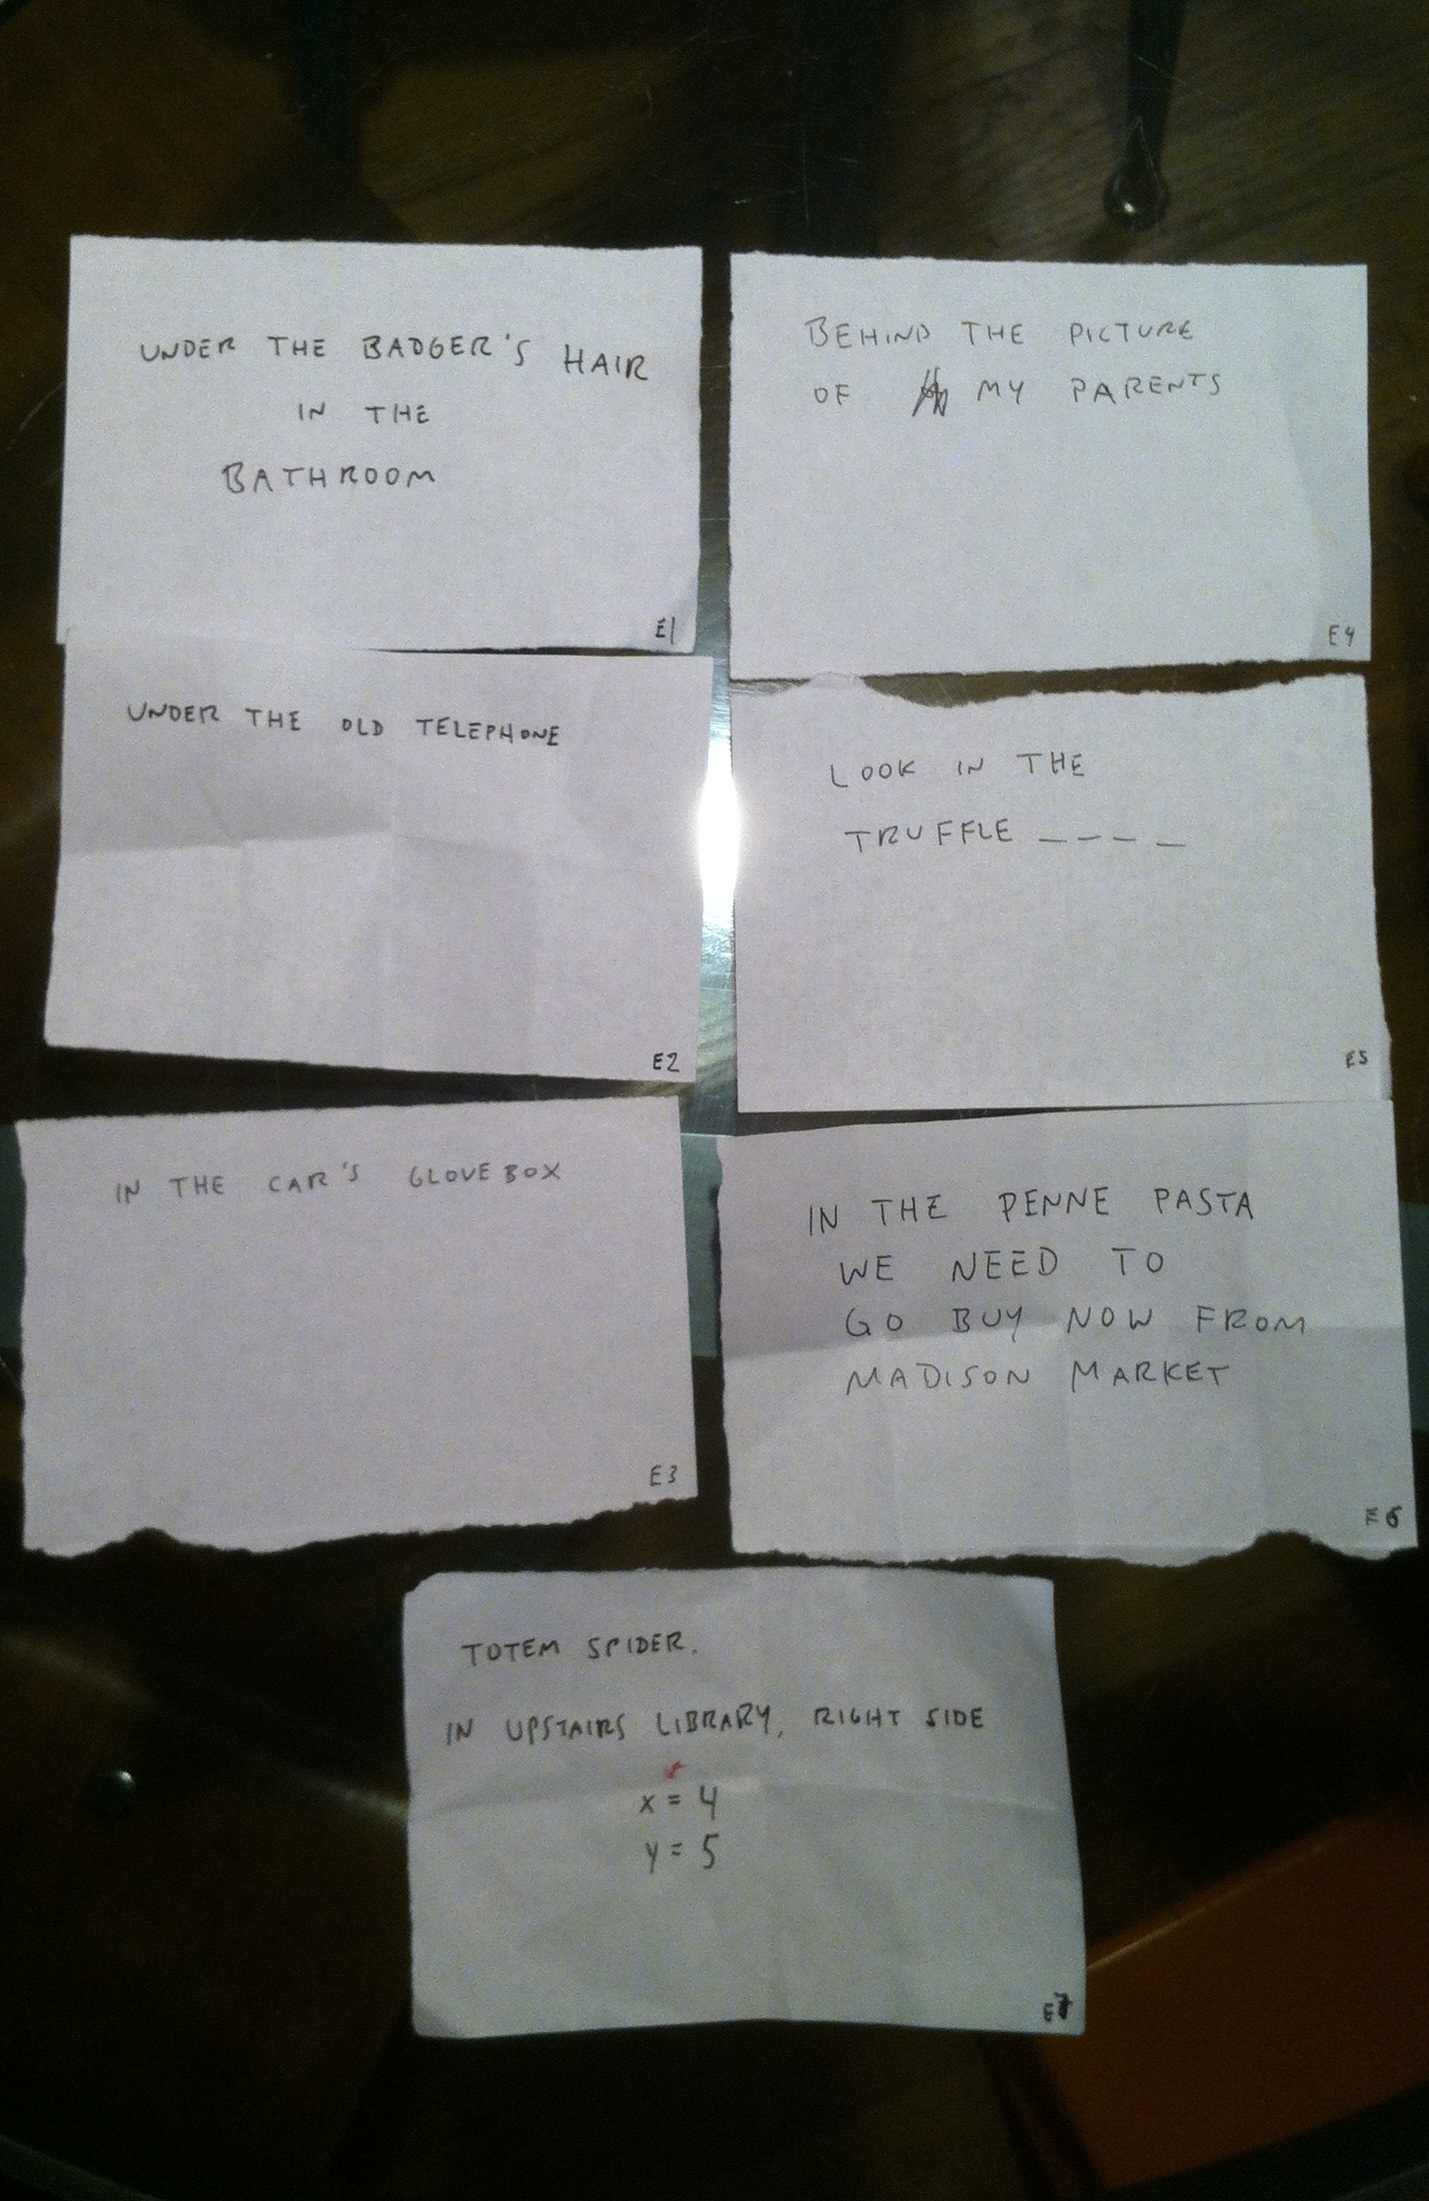 UNDER THE BADGER'S HAIR
IN THE
BATHROOM
E1
UNDER THE OLD TELEPHONE
E2
IN THE CAR'S GLOVEBOX
E3
BEHIND THE PICTURE
OF MY PARENTS
E4
LOOK IN THE
TRUFFLE _ _ _ _
E5
IN THE PENNE PASTA
WE NEED TO
GO BUY NOW FROM
MADISON MARKET
E6
TOTEM SPIDER.
IN UPSTAIRS LIBRARY, RIGHT SIDE
x = 4
y = 5
E7